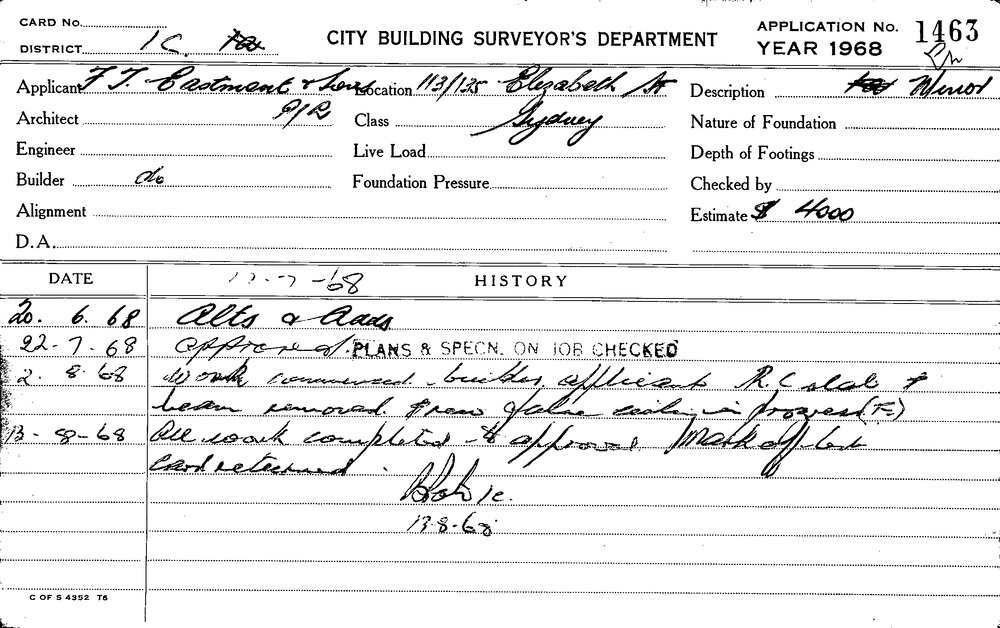 CARD No.
DISTRICT 1C
CITY BUILDING SURVEYOR'S DEPARTMENT
APPLICATION No. 1463
YEAR 1968
Applicant F. T. Eastment & Sons P/L
Location 113/135 Elizabeth St
Sydney
Description Minor
Architect
Class
Nature of Foundation
Engineer
Live Load
Depth of Footings
Builder do
Foundation Pressure
Checked by
Alignment
Estimate $ 4000
D.A.
DATE
HISTORY
-7-68
20. 6. 68 Alts & Adds
22-7-68 approved. PLANS & SPECN. ON JOB CHECKED
2. 8. 68 Work commenced. builder, applicant R.C slab &
beam removed. & new false ceiling in progress (F.)
13-8-68 All work completed - approval Mark off
Card returned.
13-8-68
C OF S 4352 T6